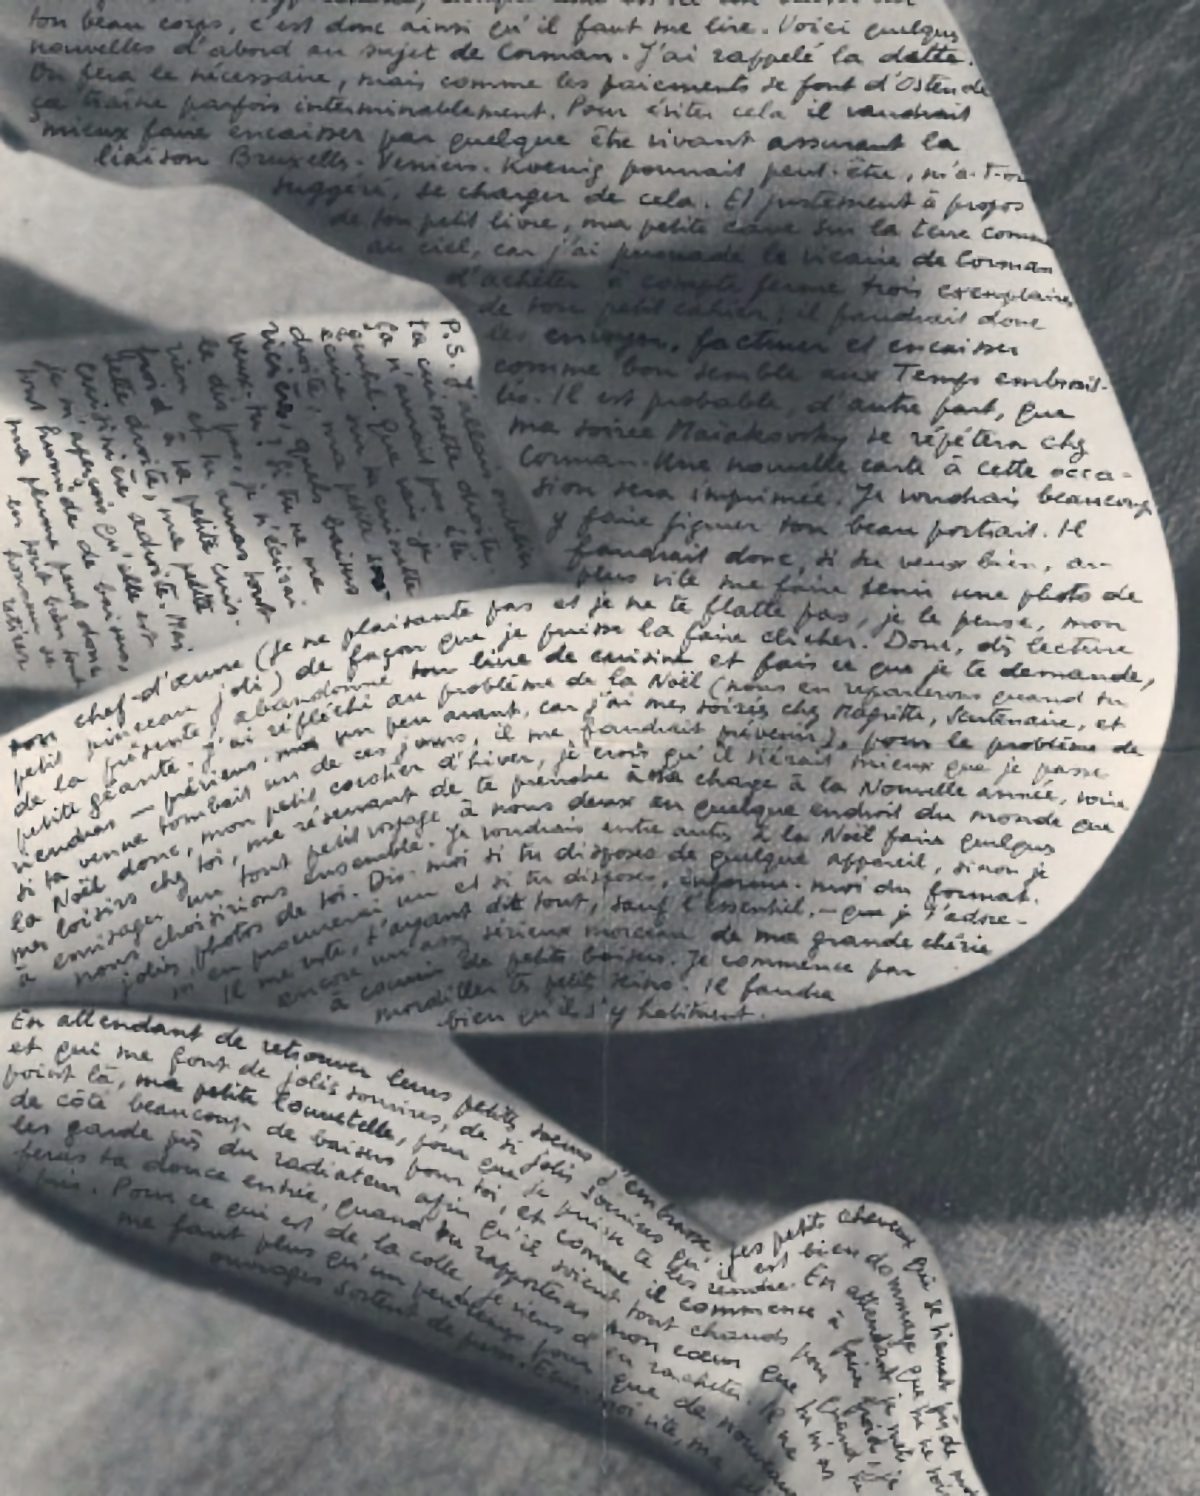 ton beau corps, c'est donc ainsi qu'il faut me lire. Voici quelques
nouvelles d'abord au sujet de Corman. J'ai rappelé la dette.
On fera le nécessaire, mais comme les paiements se font d'Ostende
ça traîne parfois interminablement. Pour éviter cela il vaudrait
mieux faire encaisser par quelque être vivant assurant la
liaison Bruxelles-Verviers. Koenig pourrait peut-être, m'a-t-on
suggéré, se charger de cela. Et justement à propos
de ton petit livre, ma petite cave sur la terre comme
au ciel, car j'ai persuadé le vicaire de Corman
d'acheter à compte ferme trois exemplaires
de ton petit cahier; il faudrait donc
les envoyer, facturer et encaisser
comme bon semble aux Temps embrouil-
lés. Il est probable, d'autre part, que
ma soirée Maïakovsky se répétera chez
Corman. Une nouvelle carte à cette occa-
sion sera imprimée. Je voudrais beaucoup
y faire figurer ton beau portrait. Il
faudrait donc, si tu veux bien, au
plus vite me faire tenir une photo de
ton chef-d'œuvre (je ne plaisante pas et je ne te flatte pas, je le pense, mon
petit pinceau joli) de façon que je puisse la faire clicher. Donc, dès lecture
de la présente, abandonne ton livre de cuisine et fais ce que je te demande,
petite géante. J'ai réfléchi au problème de la Noël (nous en reparlerons quand tu
viendras — préviens-moi un peu avant, car j'ai mes soirées chez Magritte, Scutenaire, et
si ta venue tombait un de ces jours, il me faudrait prévenir), pour le problème de
la Noël donc, mon petit cocotier d'hiver, je crois qu'il siérait mieux que je passe
mes loisirs chez toi, me réservant de te prendre à ma charge à la Nouvelle année, voire
à envisager un tout petit voyage à nous deux en quelque endroit du monde que
nous choisirions ensemble. Je voudrais entre autres à la Noël faire quelques
jolies photos de toi. Dis-moi si tu disposes de quelque appareil, sinon je
m'en procurerai un et si tu disposes, informe-moi du format.
Il me reste, t'ayant dit tout, sauf l'essentiel, — que je t'adore —
encore un assez sérieux morceau de ma grande chérie
à couvrir de petits baisers. Je commence par
mordiller tes petits seins. Il faudra
bien qu'ils s'y habituent.
P.S. J'allais oublier
ta cuissette droite.
Ça n'aurait pas été
gentil. Que vais-je
écrire sur ta cuissette
droite, ma petite
rivière, quels baisers
veux-tu? Si tu ne me
le dis pas, je n'écrirai
rien et tu auras tout
froid à ta petite cuis-
sette droite, ma petite
cuisinière adroite. Mais
je m'aperçois qu'elle est
tout humide de baisers,
ma plume peut donc
en tout bien tout
honneur se
retirer
En attendant de retrouver leurs petites sœurs j'embrasse les petits cheveux qui se tiennent près de
et qui me font de jolis sourires, de si jolis sourires qu'il est bien dommage que tu ne sois
point là, ma petite Louvetelle, pour que je puisse te les rendre. En attendant je mets
de côté beaucoup de baisers pour toi, et comme il commence à faire froid, je
les garde près du radiateur afin qu'ils soient tout chauds pour quand tu
feras ta douce entrée, quand tu rapporteras mon cœur que tu m'as
pris. Pour ce qui est de la colle, je viens d'en racheter. Il ne
me faut plus qu'un peu de temps pour que de nouveaux
ouvrages sortent de Écris-moi vite, ma